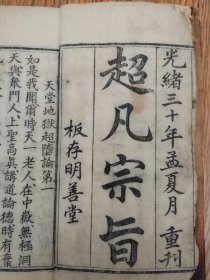 光緒三十年孟夏月　重刊
超凡宗旨
板存明善堂
天堂地獄超墮論第一
如是我聞爾時天一老人在中歡無極洞
天與衆門人上聖高眞講道論德時有棄